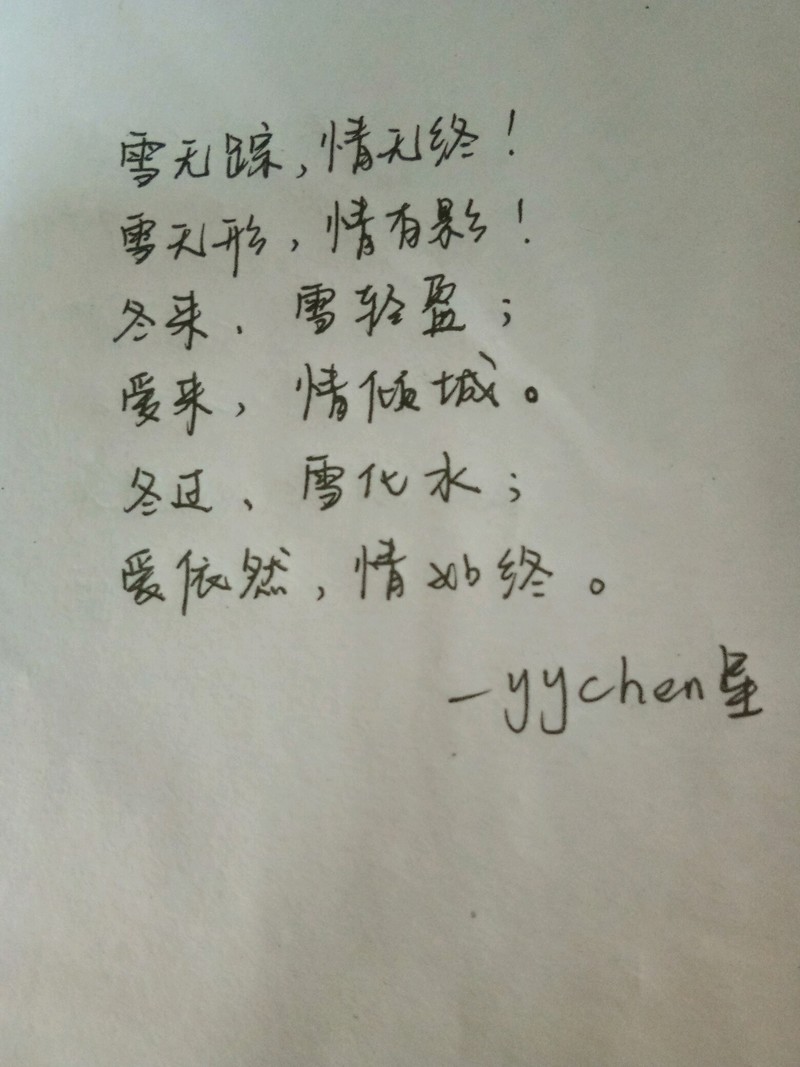 雪无踪,情无终!
雪无形,情有影!
冬来、雪轻盈;
爱来,情倾城。
冬过、雪化水;
爱依然,情如终。
—yychen星